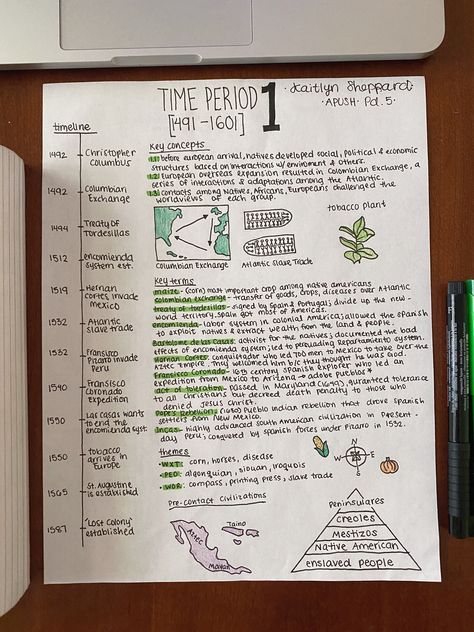 TIME PERIOD 1
[491-1601]
Kaitlyn Sheppard
APUSH Pd. 5
timeline
1492 Christopher
Columbus
1492 Columbian
Exchange
1494 Treaty of
Tordesillas
1512 encomienda
system est.
1519 Hernan
Cortes invade
mexico
1532 Atlantic
slave trade
1532 Fransisco
Pizaro invade
Peru
1540 Fransisco
coronado
expedition
1550 Las casas wants
to end the
encomienda syst.
1550 tobacco
arrives in
Europe
1565 St. Augustine
is established
1587 "Lost Colony"
established
Key concepts
1.1 before european arrival, natives developed social, political & economic
structures based on interactions w/ enviroment & others.
1.2 European overseas expansion resulted in Colombian Exchange, a
series of interactions & adaptations among the Atlantic.
1.3 contacts among Natives, Africans, Europeans challenged the
worldviews of each group.
tobacco plant
Columbian Exchange
Atlantic Slave Trade
Key terms
maize - (corn) most important crop among native americans
colombian exchange - transfer of goods, crops, diseases over Atlantic
treaty of tordesillas - signed by Spain & Portugal; divide up the new-
world territory. Spain got most of Americas.
encomienda - labor system in colonial America; allowed the Spanish
to exploit natives & extract wealth from the land & people.
Bartolome de las Casas - activist for the natives; documented the bad
effects of encomienda system; led to persuading Repartamiento system.
Hernan Cortes - conquistador who led 700 men to Mexico to take over the
Aztec Empire. They welcomed him b/c they thought he was God.
Fransisco Coronado - 16th century Spanish Explorer who led an
expedition from Mexico to Arizona → adobe pueblos
act of toleration - passed in Maryland (1649), guranteed tolerance
to all christians but decreed death penalty to those who
denied Jesus Christ.
Pope's Rebellion - (1680) Pueblo Indian rebellion that drove Spanish
settlers from New Mexico.
Incas - highly advanced south American civilization in present-
day Peru; conquered by spanish forces under Pizarro in 1532.
themes
- WXT: corn, horses, disease
- PEO: algonquian, siouan, iroquois
- WOR: compass, printing press, slave trade
N
W E
S
Pre-contact Civilizations
Aztec
Taino
Mayan
Peninsulares
creoles
Mestizos
Native American
enslaved people